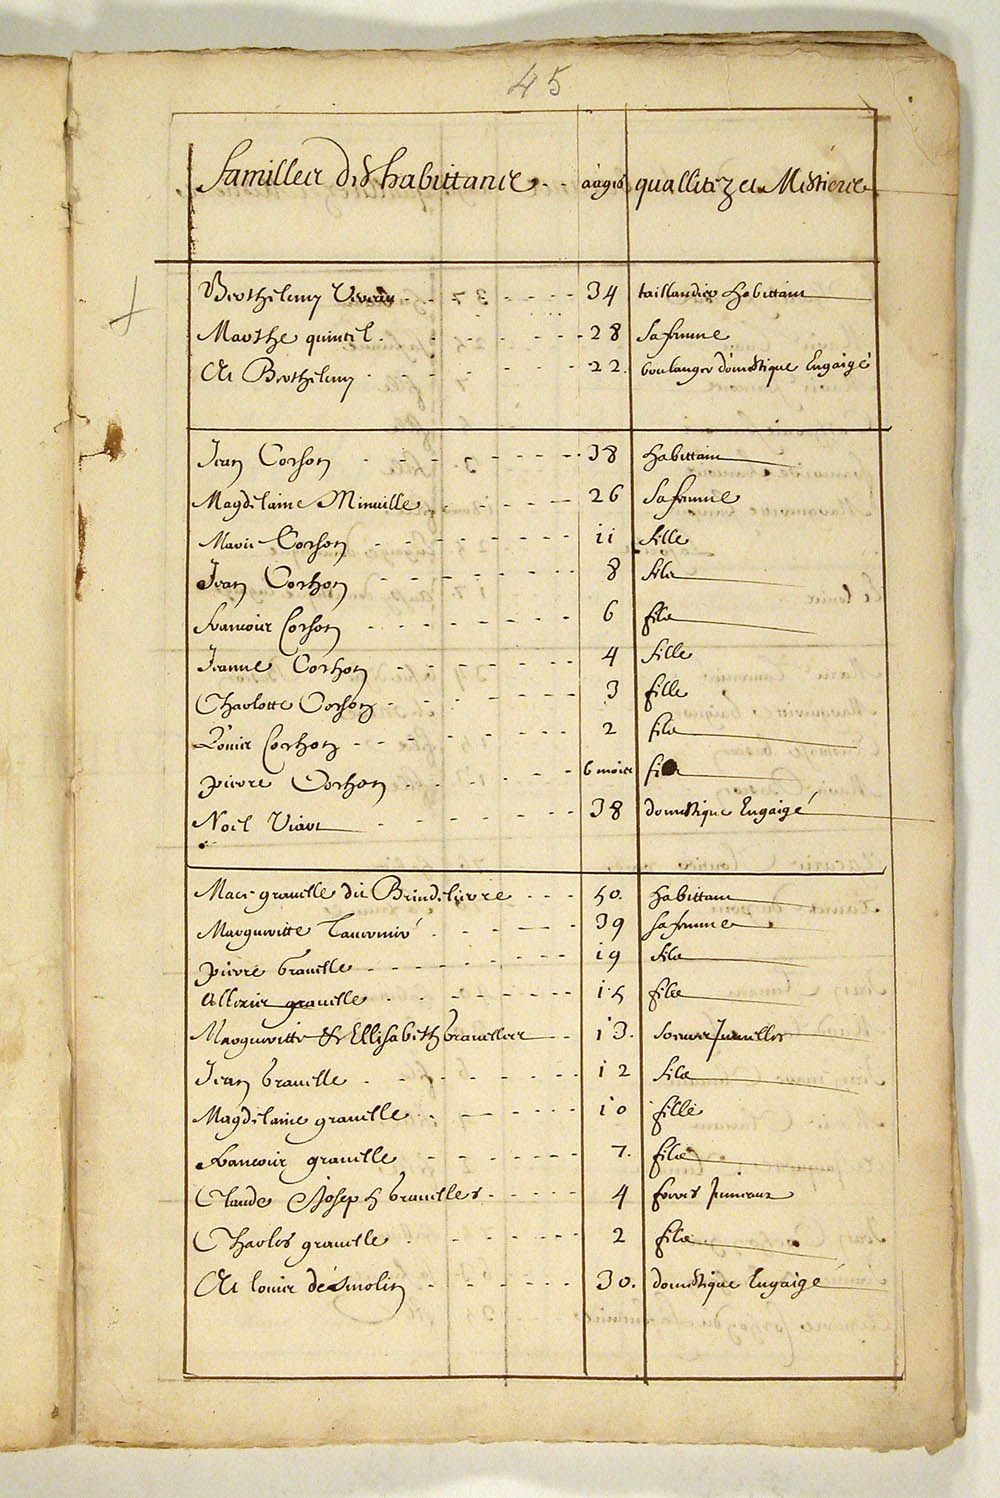 45
Familles des habittans aages quallitez et Mestiers
Berthelemy Verrau 34 taillandier habittant
Marthe quintel 28 Sa femme
Et Berthelemy 22. boulanger domestique Engaigé
Jean Cochon 38 habittant
Magdelaine Miuille 26 Sa femme
Marie Cochon 11 fille
Jean Cochon 8 fils
francois Cochon 6 fils
Jeanne Cochon 4 fille
Charlotte Cochon 3 fille
Louis Cochon 2 fils
pierre Cochon 6 mois fils
Noel Viart 38 domestique Engaigé
Mace grauelle dit Brindeliure 50. habittant
Margueritte Tauernié 39 sa femme
pierre Grauelle 19 fils
Allexis grauelle 15 fils
Margueritte & Ellisabeth Grauelles 13. Soeurs Jumelles
Jean Grauelle 12 fils
Magdelaine grauelle 10 fille
francois grauelle 7. fils
Claude Joseph Grauelles 4 freres Jumeaux
Charles grauelle 2 fils
Et louis desmolin 30. domestique Engaigé